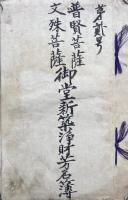 第貳号
普賢菩薩
文殊菩薩
御堂新築浄財芳名簿